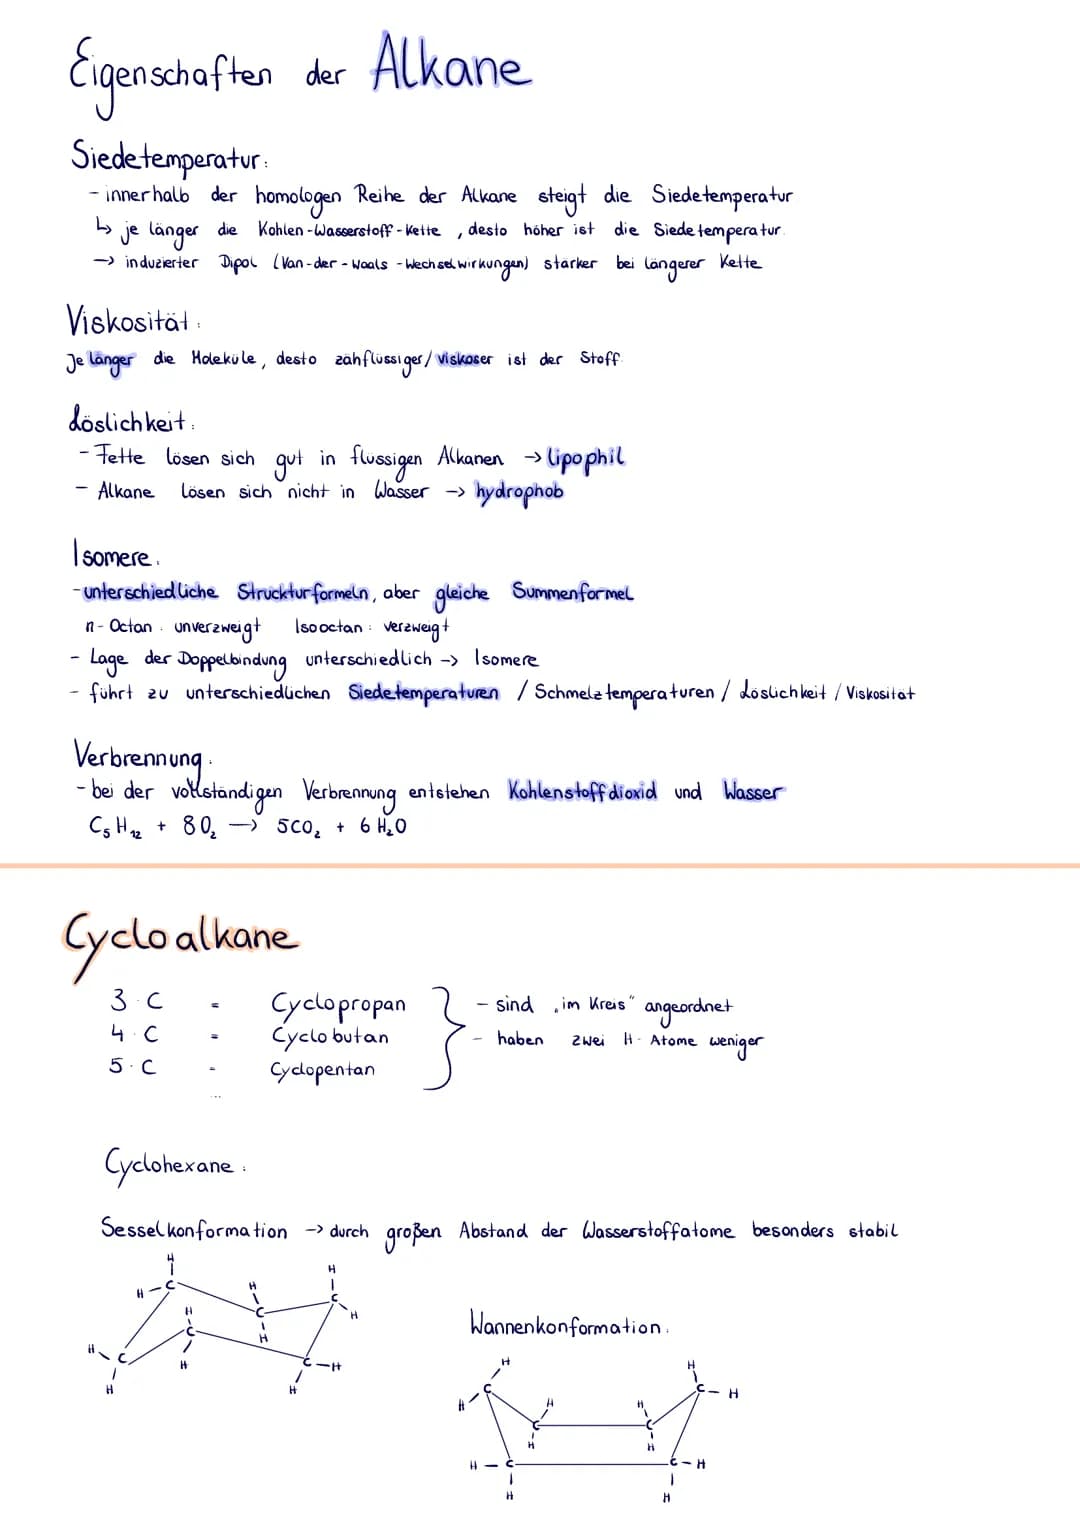 Eigenschaften der Alkane
Siedetemperatur:
- innerhalb der homologen Reihe der Alkane steigt die Siedetemperatur
↳ je länger die Kohlen-Wasserstoff-Kette, desto höher ist die Siedetemperatur.
→ induzierter Dipol (Van-der-Waals-Wechselwirkungen) stärker bei längerer Kette
Viskosität:
Je länger die Moleküle, desto zähflüssiger/viskoser ist der Stoff.
Löslichkeit:
- Fette lösen sich gut in flüssigen Alkanen → lipophil
- Alkane lösen sich nicht in Wasser → hydrophob
Isomere:
- unterschiedliche Struckturformeln, aber gleiche Summenformel
n-Octan: unverzweigt Isooctan: verzweigt
- Lage der Doppelbindung unterschiedlich -> Isomere
- führt zu unterschiedlichen Siedetemperaturen / Schmelztemperaturen / Löslichkeit / Viskosität
Verbrennung:
- bei der vollständigen Verbrennung entstehen Kohlenstoffdioxid und Wasser
C₅H₁₂ + 8O₂ → 5CO₂ + 6H₂O
Cycloalkane
3·C = Cyclopropan } - sind „im Kreis" angeordnet
4·C = Cyclobutan - haben zwei H-Atome weniger
5·C = Cyclopentan
...
Cyclohexane:
Sesselkonformation -> durch großen Abstand der Wasserstoffatome besonders stabil
H
H
H - C
H
C
H
H
C
H
C
H
H
C
H
H
C - H
H
Wannenkonformation:
H
H
C
H
C
H
H
C
H
H
C - H
H - C
H
C - H
H